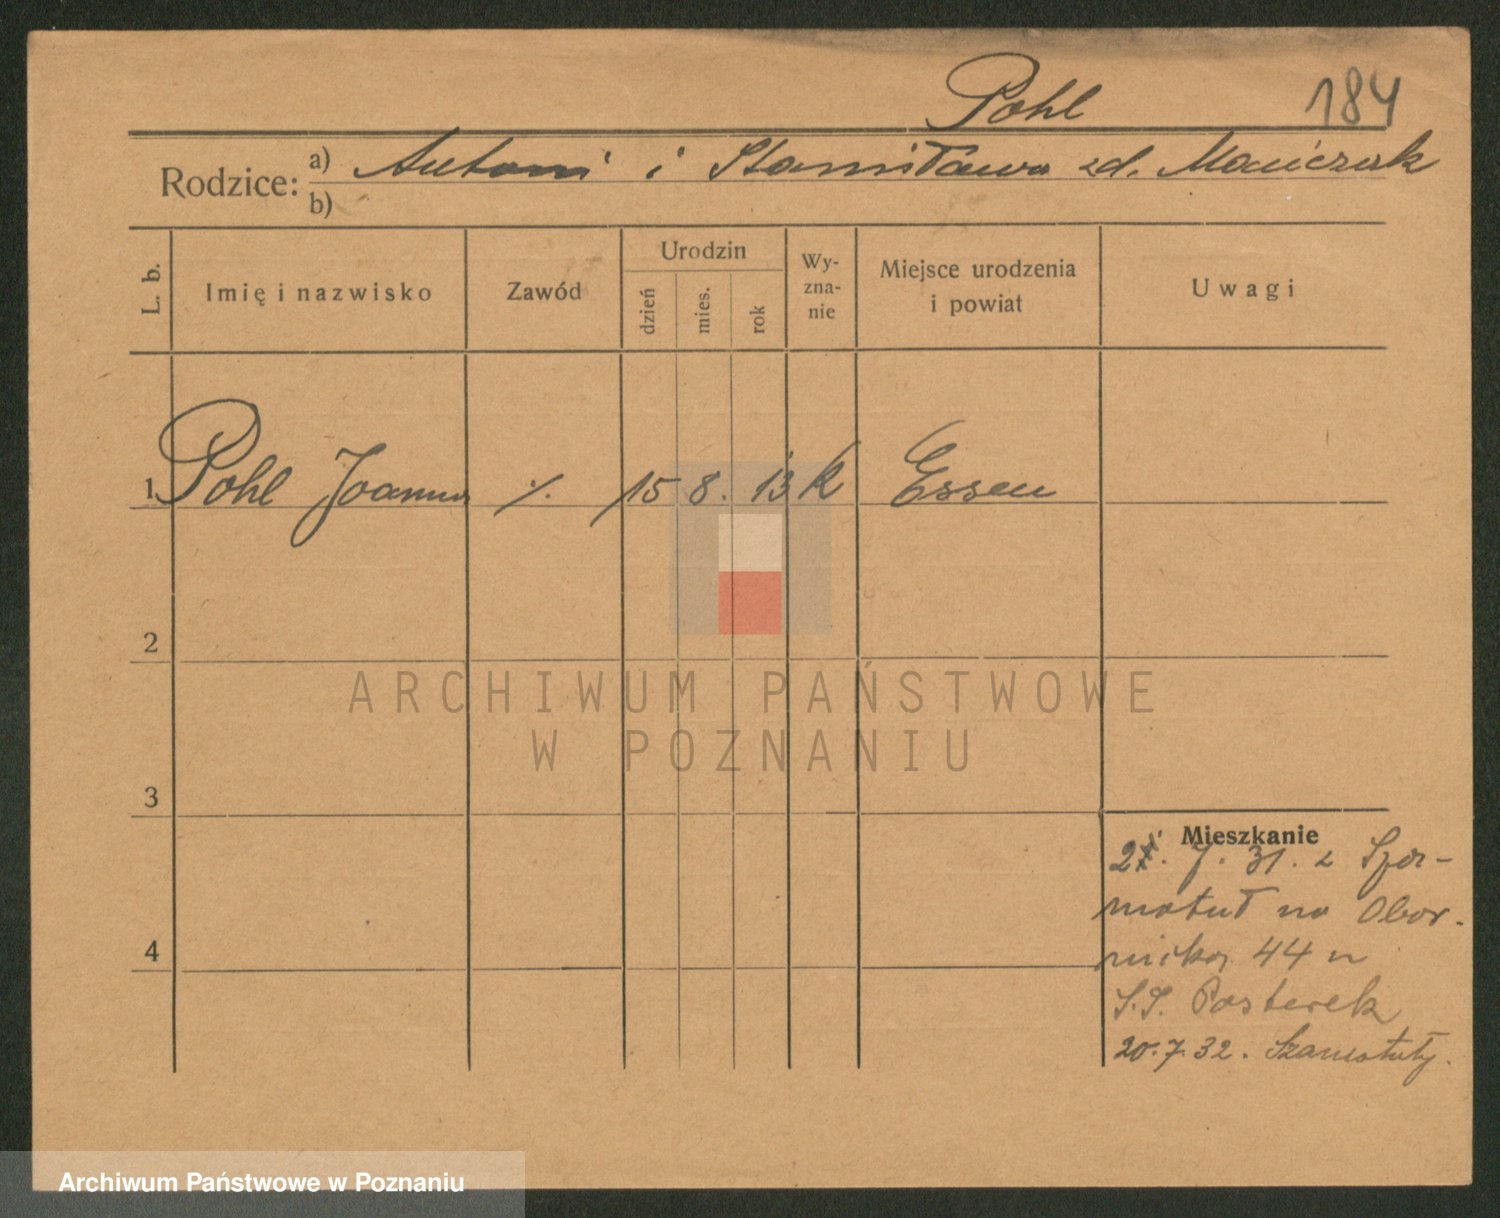 Pohl 184
Rodzice: a) Antoni i Stanisława zd. Mańczak
b)
L. b. Imię i nazwisko Zawód Urodzin dzień mies. rok Wy-zna-nie Miejsce urodzenia i powiat Uwagi
1 Pohl Joanna ./. 15 8. 13 k Essen
2
ARCHIWUM PAŃSTWOWE
W POZNANIU
3
Mieszkanie
7. 31. z Sza-
motuł na Obor-
nicką 44
S.S. Posterek
4
20.7.32. Szamotuły.
Archiwum Państwowe w Poznaniu